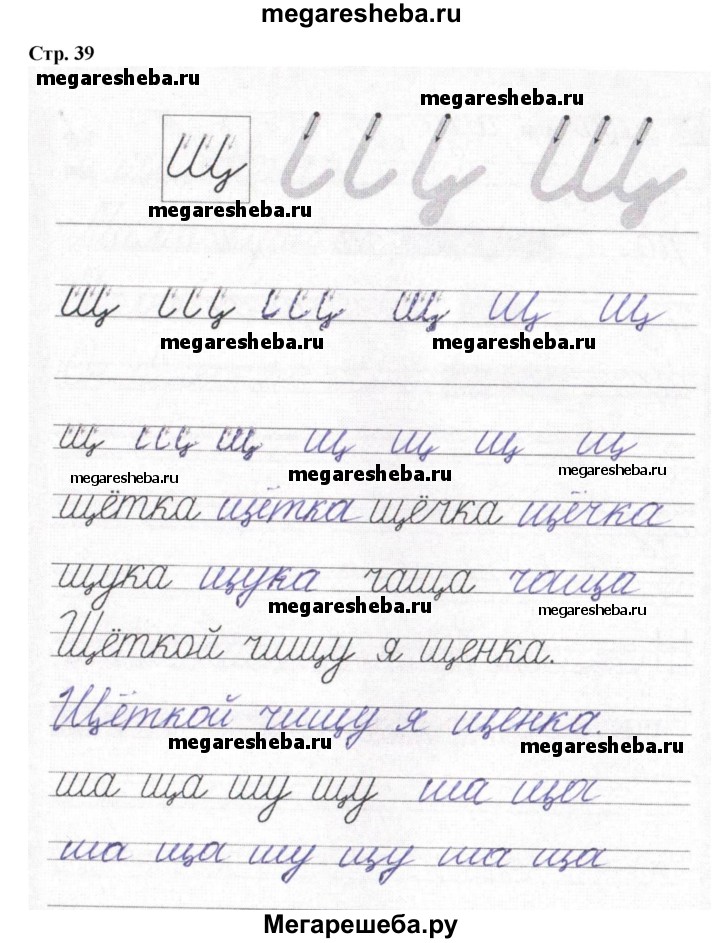 megaresheba.ru
Стр. 39
megaresheba.ru
megaresheba.ru
Щ Щ Щ
megaresheba.ru
Щ Щ Щ Щ Щ Щ
megaresheba.ru megaresheba.ru
щ щ щ щ щ щ щ
megaresheba.ru megaresheba.ru megaresheba.ru
щётка щётка щёчка щёчка
щука щука чаща чаща
megaresheba.ru megaresheba.ru
Щёткой чищу я щенка.
Щёткой чищу я щенка.
megaresheba.ru megaresheba.ru
ша ща шу щу ша ща
ша ща шу щу ша ща
Мегарешеба.ру